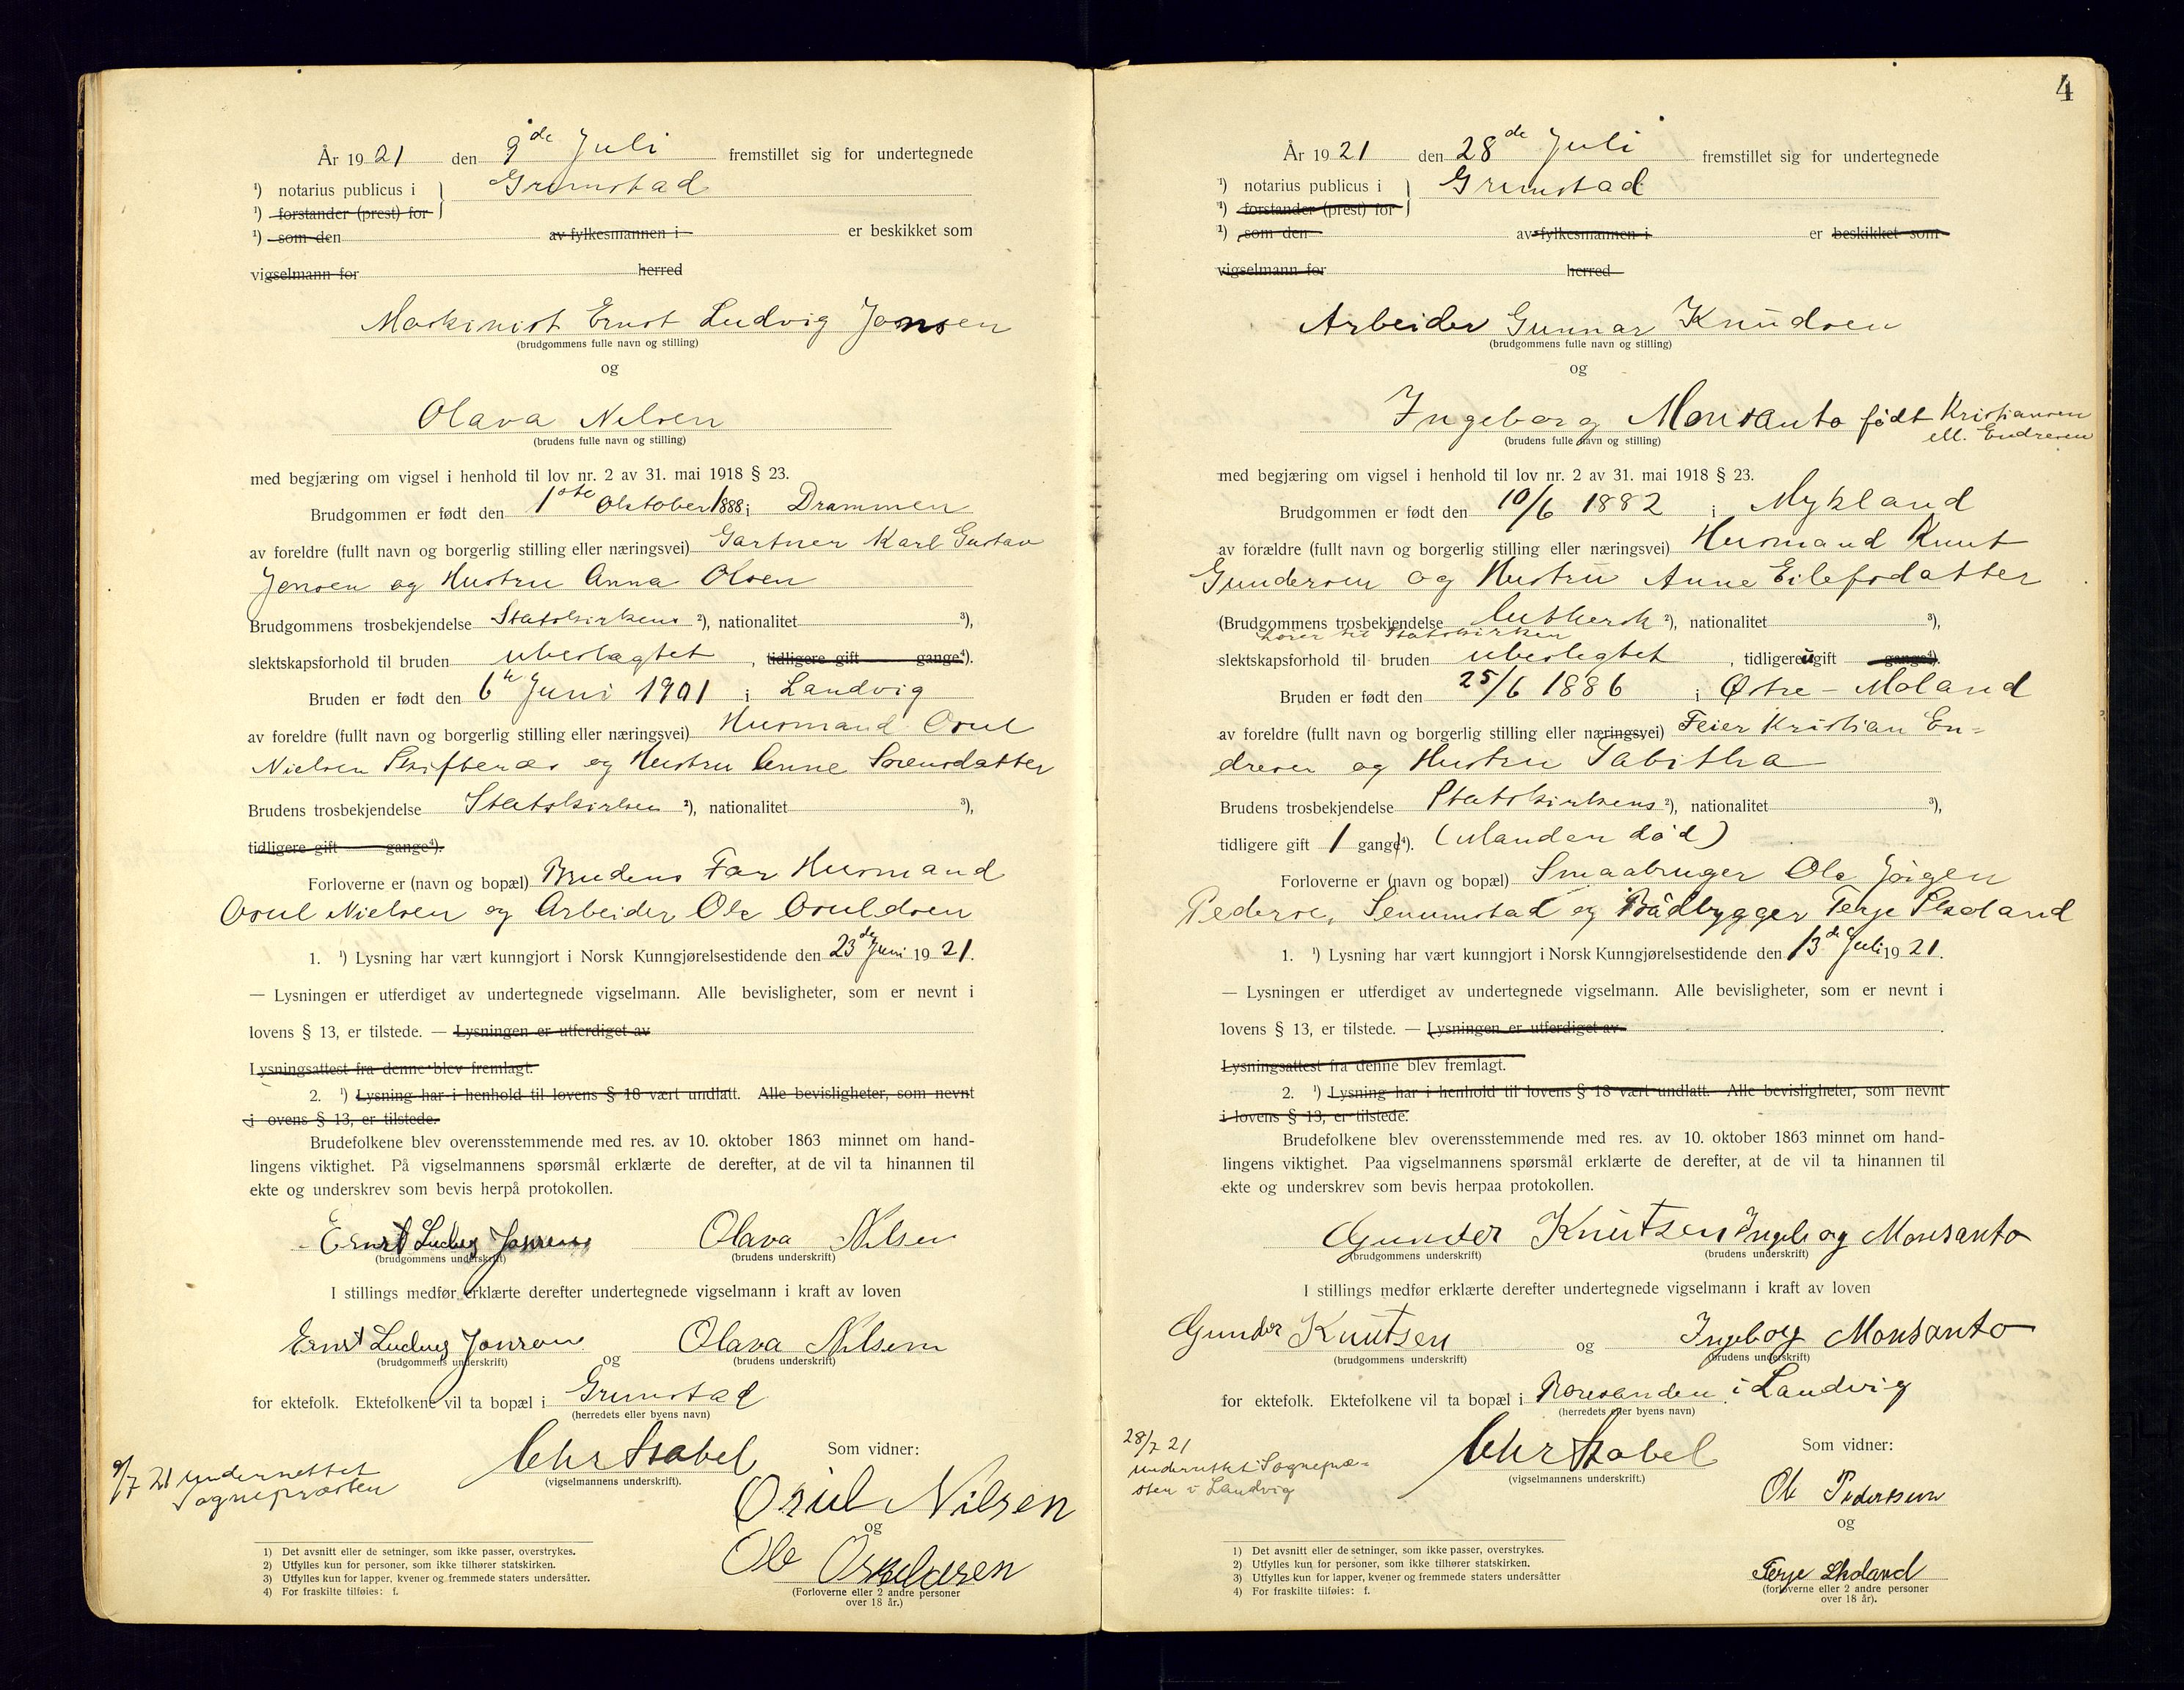 År 1921 den 9de Juli fremstillet sig for undertegnede
¹) notarius publicus i Grimstad
¹) forstander (prest) for
¹) som den av fylkesmannen i er beskikket som
vigselmann for herred
Maskinist Ernst Ludvig Jonsen
(brudgommens fulle navn og stilling)
og
Olava Nilsen
(brudens fulle navn og stilling)
med begjæring om vigsel i henhold til lov nr. 2 av 31. mai 1918 § 23.
Brudgommen er født den 1ste Oktober 1888 i Drammen
av foreldre (fullt navn og borgerlig stilling eller næringsvei) Gartner Karl Gustav
Jonsen og Hustru Anna Olsen
Brudgommens trosbekjendelse Statskirkens ²), nationalitet ³),
slektskapsforhold til bruden ubeslægtet , tidligere gift gange⁴).
Bruden er født den 6te Juni 1901 i Landvig
av foreldre (fullt navn og borgerlig stilling eller næringsvei) Husmand Osul
Nielsen Skiftenæs og Hustru Anne Sorensdatter
Brudens trosbekjendelse Statskirken ²), nationalitet ³),
tidligere gift gange⁴).
Forloverne er (navn og bopæl) Brudens Far Husmand
Osul Nielsen og Arbeider Ole Osuldsen
1. ¹) Lysning har vært kunngjort i Norsk Kunngjørelsestidende den 23de Juni 1921.
— Lysningen er utferdiget av undertegnede vigselmann. Alle bevisligheter, som er nevnt i
lovens § 13, er tilstede. — Lysningen er utferdiget av
Lysningsattest fra denne blev fremlagt.
2. ¹) Lysning har i henhold til lovens § 18 vært undlatt. Alle bevisligheter, som nevnt
i ovens § 13, er tilstede.
Brudefolkene blev overensstemmende med res. av 10. oktober 1863 minnet om hand-
lingens viktighet. På vigselmannens spørsmål erklærte de derefter, at de vil ta hinannen til
ekte og underskrev som bevis herpå protokollen.
Ernst Ludvig Jonsen Olava Nilsen
(brudgommens underskrift) (brudens underskrift)
I stillings medfør erklærte derefter undertegnede vigselmann i kraft av loven
Ernst Ludvig Jonsen og Olava Nilsen
(brudgommens underskrift) (brudens underskrift)
for ektefolk. Ektefolkene vil ta bopæl i Grimstad
(herredets eller byens navn)
Chr Stabel Som vidner:
(vigselmannens underskrift).
9/7 21 underrettet
Sognepræsten
Osul Nilsen
og
Ole Osuldsen
(Forloverne eller 2 andre personer
over 18 år.)
1) Det avsnitt eller de setninger, som ikke passer, overstrykes.
2) Utfylles kun for personer, som ikke tilhører statskirken.
3) Utfylles kun for lapper, kvener og fremmede staters undersåtter.
4) For fraskilte tilføies: f.
4
År 1921 den 28de Juli fremstillet sig for undertegnede
¹) notarius publicus i Grimstad
¹) forstander (prest) for
¹) som den av fylkesmannen i er beskikket som
vigselmann for herred
Arbeider Gunnar Knudsen
(brudgommens fulle navn og stilling)
og
Ingeborg Monsanto født Kristiansen
ell. Endresen
(brudens fulle navn og stilling)
med begjæring om vigsel i henhold til lov nr. 2 av 31. mai 1918 § 23.
Brudgommen er født den 10/6 1882 i Mykland
av forældre (fullt navn og borgerlig stilling eller næringsvei) Husmand Knut
Gundersen og Hustru Anne Eilefsdatter
(Brudgommens trosbekjendelse luthersk ²), nationalitet ³),
hører til Statskirken
slektskapsforhold til bruden ubeslegtet , tidligere ugift gange⁴).
Bruden er født den 25/6 1886 i Østre-Moland
av foreldre (fullt navn og borgerlig stilling eller næringsvei) Feier Kristian En-
dresen og Hustru Tabitha
Brudens trosbekjendelse Statskirkens ²), nationalitet ³),
tidligere gift 1 gang⁴). (Manden død)
Forloverne er (navn og bopæl) Smaabruger Ole Jörgen
Pederse, Senumstad og Bådbygger Terje Skoland
1. ¹) Lysning har vært kunngjort i Norsk Kunngjørelsestidende den 13de Juli 1921.
— Lysningen er utferdiget av undertegnede vigselmann. Alle bevisligheter, som er nevnt i
lovens § 13, er tilstede. — Lysningen er utferdiget av
Lysningsattest fra denne blev fremlagt.
2. ¹) Lysning har i henhold til lovens § 18 vært undlatt. Alle bevisligheter, som nevnt
i lovens § 13, er tilstede.
Brudefolkene blev overensstemmende med res. av 10. oktober 1863 minnet om hand-
lingens viktighet. Paa vigselmannens spørsmål erklærte de derefter, at de vil ta hinannen til
ekte og underskrev som bevis herpaa protokollen.
Gunder Knutsen Ingeborg Monsanto
(brudgommens underskrift) (brudens underskrift)
I stillings medfør erklærte derefter undertegnede vigselmann i kraft av loven
Gunder Knutsen og Ingeborg Monsanto
(brudgommens underskrift) (brudens underskrift)
for ektefolk. Ektefolkene vil ta bopæl i Roresanden i Landvig
(herredets eller byens navn)
Chr Stabel Som vidner:
(vigselmannens underskrift.)
28/7 21
underrettet Sognepræ-
sten i Landvig
Ole Pedersen
og
Terje Skoland
(forloverne eller 2 andre personer
over 18 år).
1) Det avsnitt eller de setninger, som ikke passer, overstrykes.
2) Utfylles kun for personer, som ikke tilhører statskirken.
3) Utfylles kun for lapper, kvener og fremmede staters undersåtter
4) For fraskilte tilføies: f.